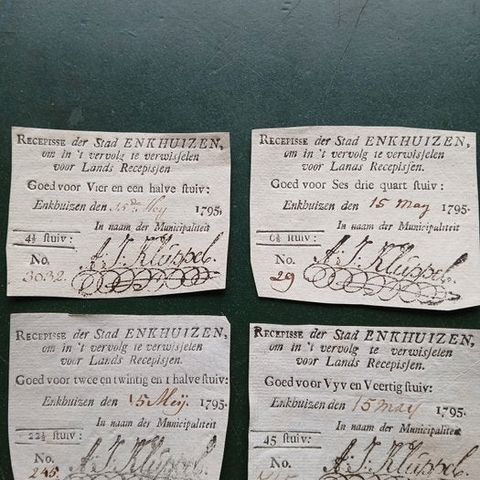 RECEPISSE der Stad ENKHUIZEN,
om in 't vervolg te verwisselen
voor Lands Recepisjen.
Goed voor Vier en een halve stuiv:
Enkhuizen den 15de Meij 1795.
In naam der Municipaliteit
4½ stuiv:
A. J. Kluppel.
No.
3032.
RECEPISSE der Stad ENKHUIZEN,
om in 't vervolg te verwisselen
voor Lands Recepisjen.
Goed voor Ses drie quart stuiv:
Enkhuizen den 15 May 1795.
In naam der Municipaliteit
6¾ stuiv:
A. J. Kluppel.
No.
29
RECEPISSE der Stad ENKHUIZEN,
om in 't vervolg te verwisselen
voor Lands Recepisjen.
Goed voor twee en twintig en 1 halve stuiv:
Enkhuizen den 15 Meij. 1795.
In naam der Municipaliteit
22½ stuiv:
A. J. Kluppel.
No.
245.
RECEPISSE der Stad ENKHUIZEN,
om in 't vervolg te verwisselen
voor Lands Recepisjen.
Goed voor Vyv en Veertig stuiv:
Enkhuizen den 15 may 1795.
In naam der Municipaliteit
45 stuiv:
A. J. Kluppel
No.